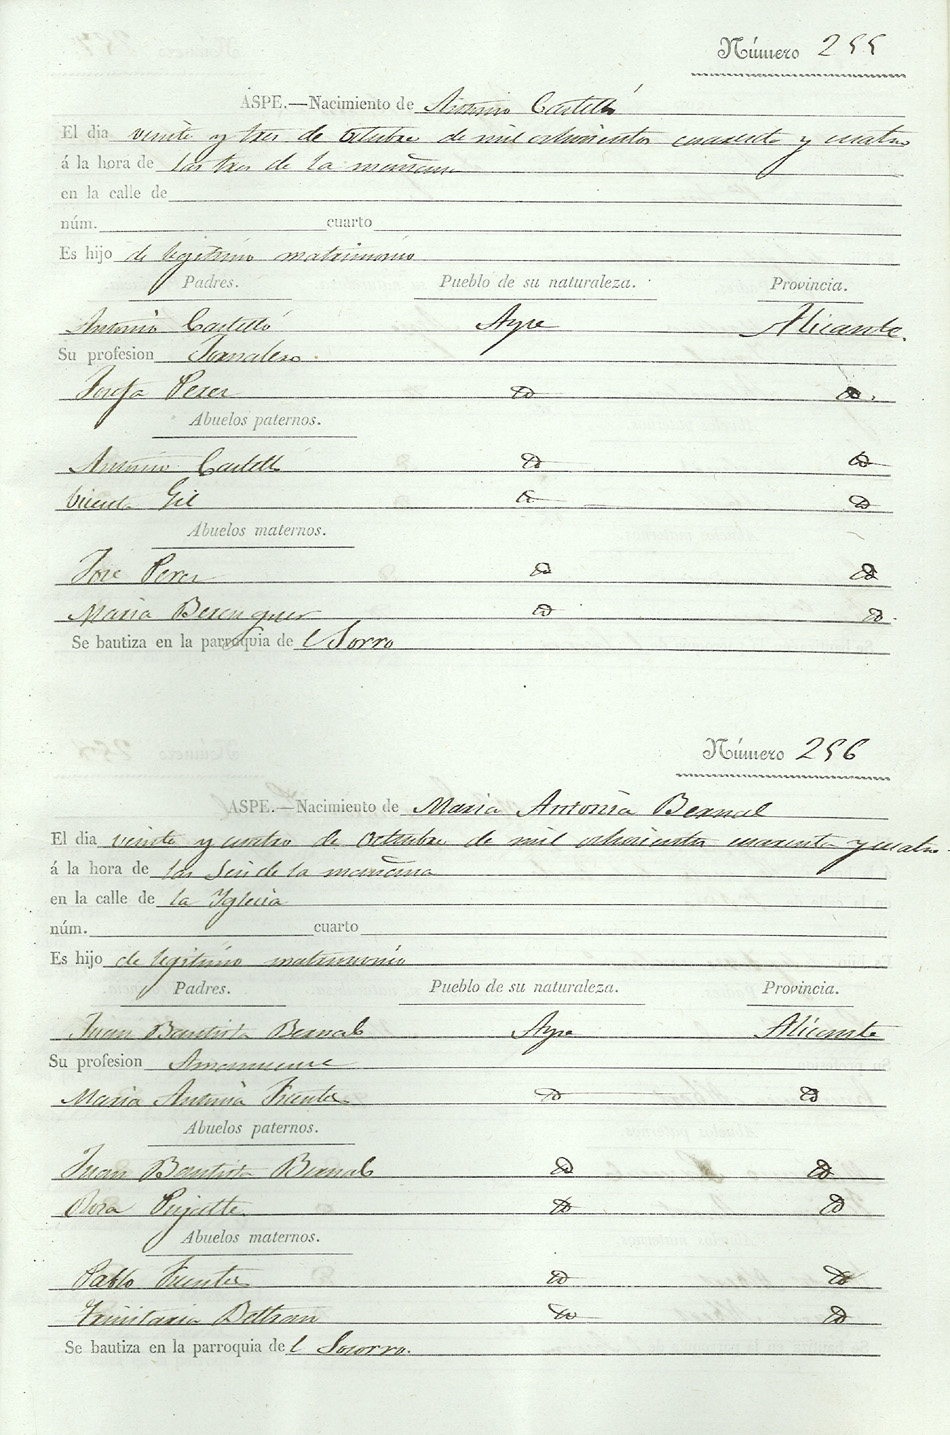 Número 255
ASPE.—Nacimiento de Antonio Castelló
El dia veinte y tres de Octubre de mil ochocientos cuarenta y cuatro
á la hora de las tres de la mañana
en la calle de
núm. cuarto
Es hijo de legitimo matrimonio
Padres. Pueblo de su naturaleza. Provincia.
Antonio Castelló Aspe Alicante.
Su profesion Jornalero.
Josefa Perez
Abuelos paternos.
Antonio Castelló
Vicenta Gil
Abuelos maternos.
Jose Perez
Maria Berenguer
Se bautiza en la parroquia de l Sorro
Número 256
ASPE.—Nacimiento de Maria Antonia Bernal
El dia veinte y cuatro de Octubre de mil ochocientos cuarenta y cuatro
á la hora de las Seis de la mañana
en la calle de la Yglesia
núm. cuarto
Es hijo de legitimo matrimonio
Padres. Pueblo de su naturaleza. Provincia.
Juan Bautista Bernal Aspe Alicante
Su profesion
Maria Antonia
Abuelos paternos.
Juan Bautista Bernal
Rosa
Abuelos maternos.
Pablo
Trinitaria Beltran
Se bautiza en la parroquia de l Socorro.